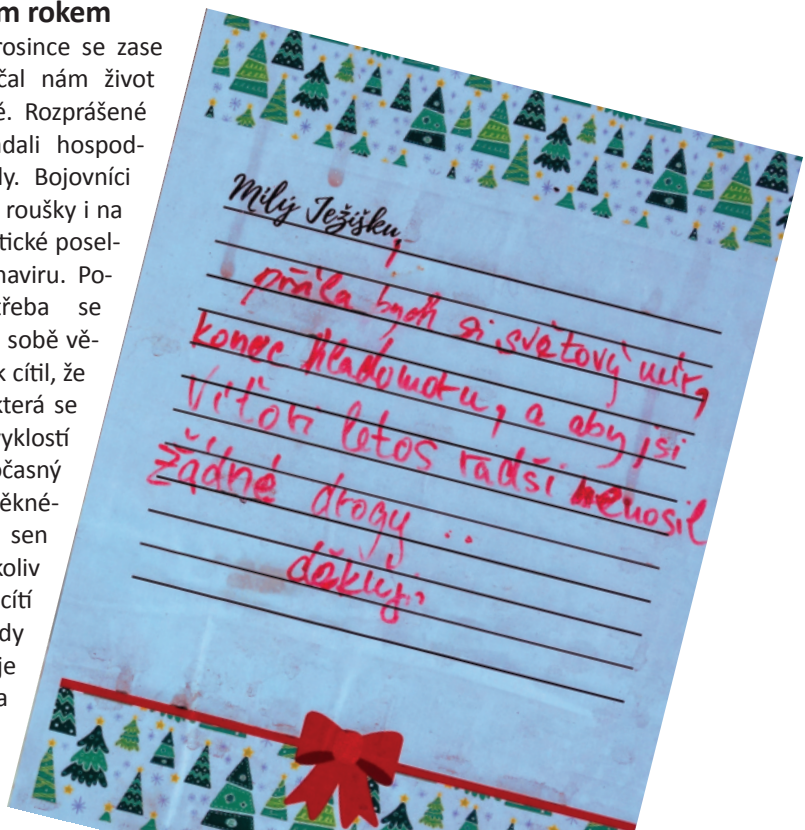 m rokem
rosince se zase
čal nám život
ě. Rozprášené
dali hospod-
ly. Bojovníci
roušky i na
tické posel-
naviru. Po-
třeba se
sobě vě-
k cítil, že
která se
yklostí
očasný
ěkné-
sen
koliv
cítí
dy
je
a
Milý Ježíšku,
přála bych si světový mír,
konec hladomoru, a aby jsi
Víťovi letos radši nenosil
žádné drogy ..
děkuji